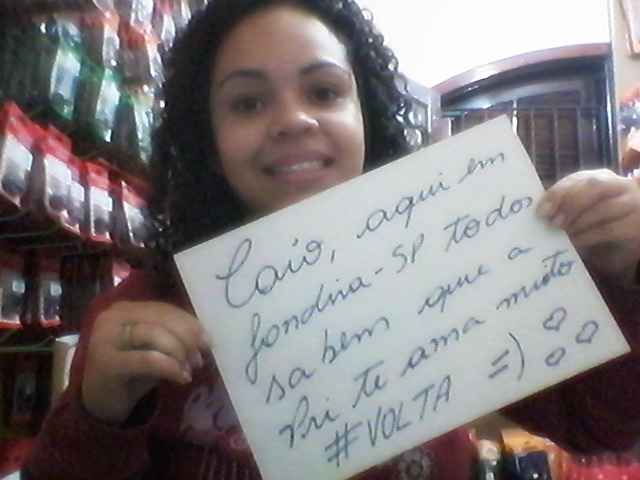 Caio, aqui em
Jandira-SP todos
sabem que a
Pri te ama muito
#VOLTA =)